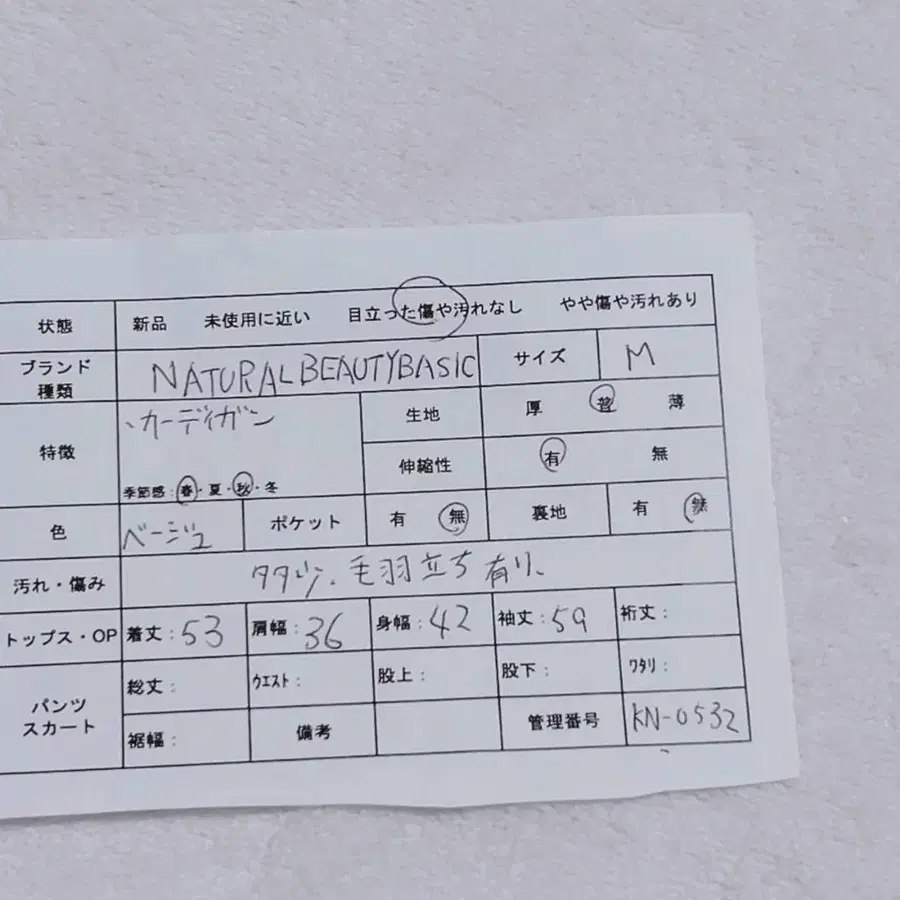 状態 新品 未使用に近い 目立った傷や汚れなし やや傷や汚れあり
ブランド
種類 NATURAL BEAUTY BASIC サイズ M
特徴 、カーディガン 生地 厚 普 薄
伸縮性 有 無
季節感：春・夏・秋・冬
色 ベージュ ポケット 有 無 裏地 有 無
汚れ・傷み 毛羽立ち有り、
トップス・OP 着丈：53 肩幅：36 身幅：42 袖丈：59 裄丈：
パンツ
スカート 総丈： ウエスト： 股上： 股下： ワタリ：
裾幅： 備考 管理番号 KN-0532